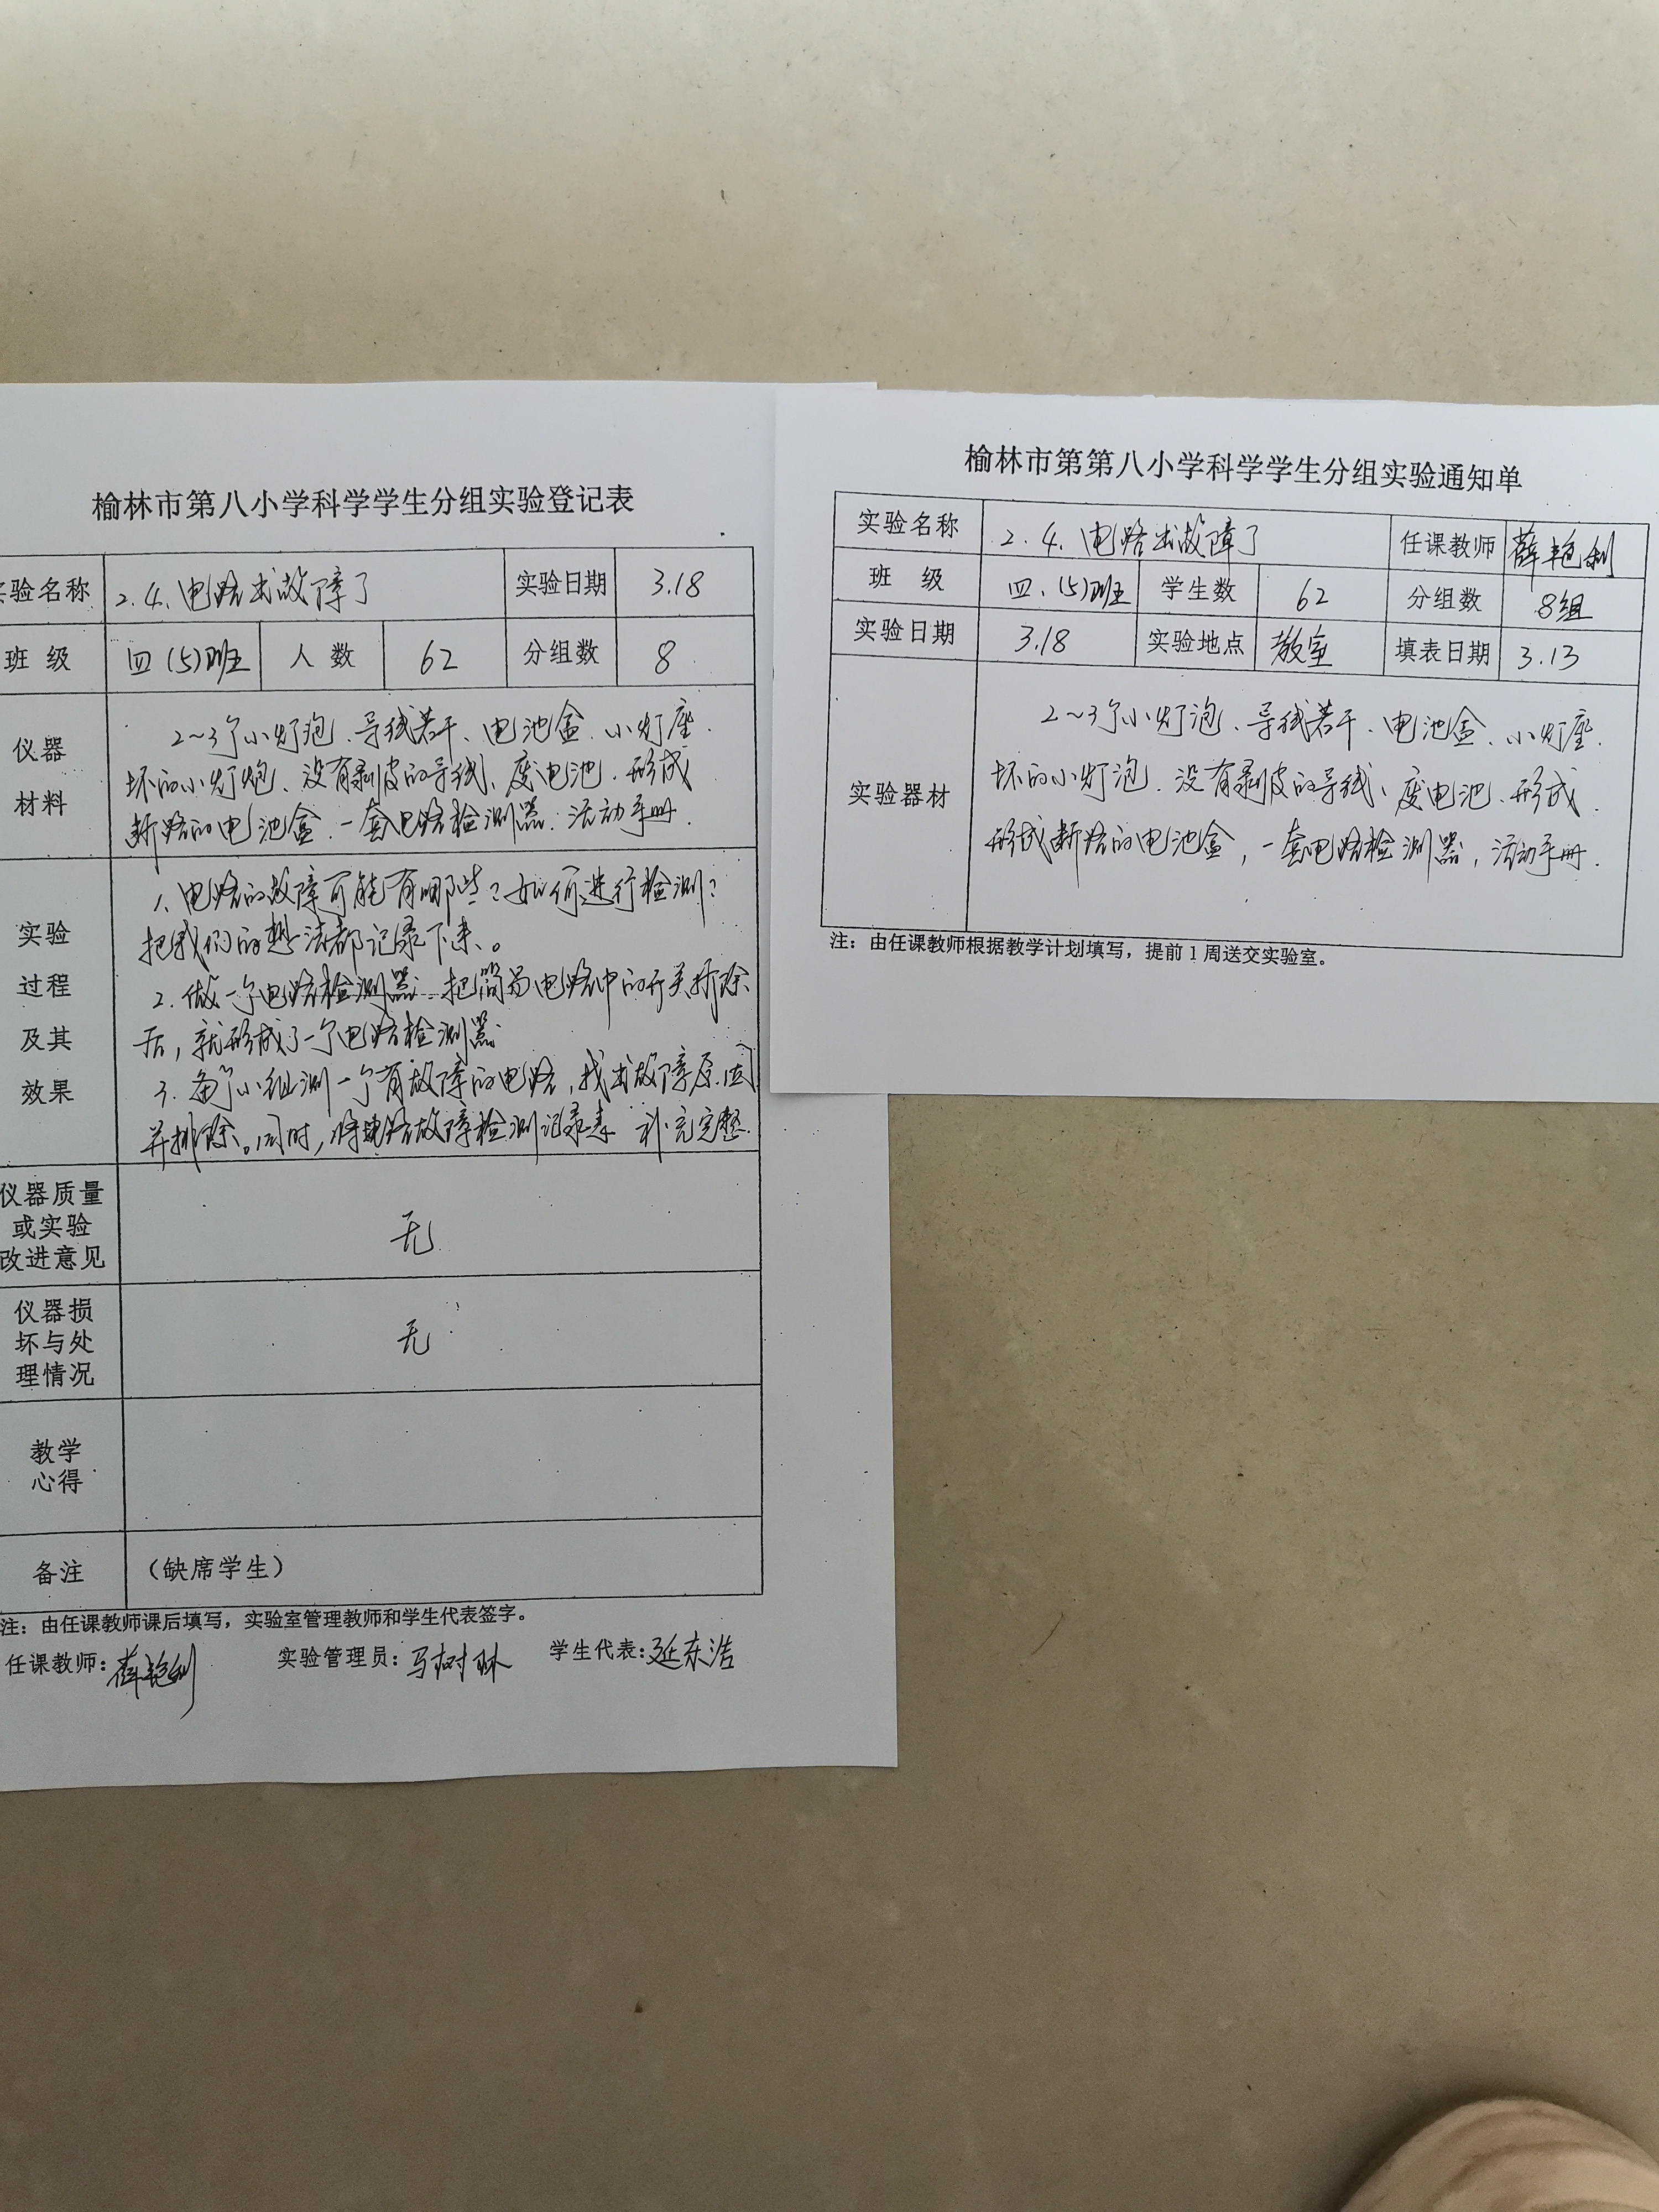 榆林市第八小学科学学生分组实验登记表
实验名称 2.4、电路出故障了 实验日期 3.18
班级 四(5)班 人数 62 分组数 8
仪器材料
2~3个小灯泡、导线若干、电池盒、小灯座、
坏的小灯炮、没有剥皮的导线、废电池、形成
断路的电池盒、一套电路检测器、活动手册
实验过程及其效果
1、电路的故障可能有哪些?如何进行检测?
把我们的想法都记录下来。
2.做一个电路检测器 把简易电路中的开关拆除
后,就形成了一个电路检测器
3.每个小组测一个有故障的电路,找出故障原因
并排除。同时,将电路故障检测记录表 补充完整
仪器质量
或实验
改进意见
无
仪器损
坏与处
理情况
无
教学
心得
备注 (缺席学生)
注:由任课教师课后填写,实验室管理教师和学生代表签字。
任课教师:薛艳利 实验管理员:马树林 学生代表:延东浩
榆林市第第八小学科学学生分组实验通知单
实验名称 2.4、电路出故障了 任课教师 薛艳利
班级 四、(5)班 学生数 62 分组数 8组
实验日期 3.18 实验地点 教室 填表日期 3.13
实验器材
2~3个小灯泡、导线若干、电池盒、小灯座、
坏的小灯泡、没有剥皮的导线、废电池、形成
形成断路的电池盒,一套电路检测器,活动手册.
注:由任课教师根据教学计划填写,提前1周送交实验室。